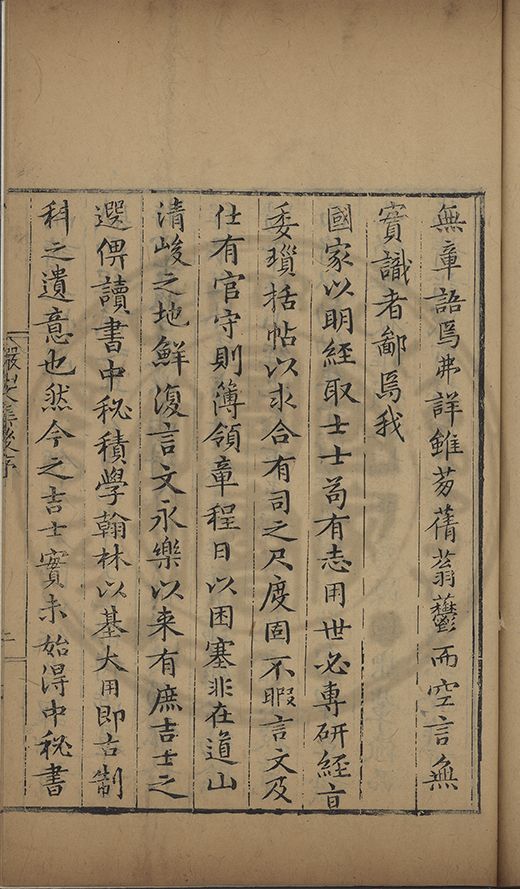 無章語焉弗詳雖芬蒨蓊鬱而空言無
實識者鄙焉我
國家以明經取士士苟有志用世必專研經旨
委瑣括帖以求合有司之尺度固不暇言文及
仕有官守則簿領章程日以困塞非在道山
清峻之地鮮復言文永樂以来有庶吉士之
選俾讀書中秘積學翰林以基大用即古制
科之遺意也然今之吉士實未始得中秘書
儼山文集後序
二